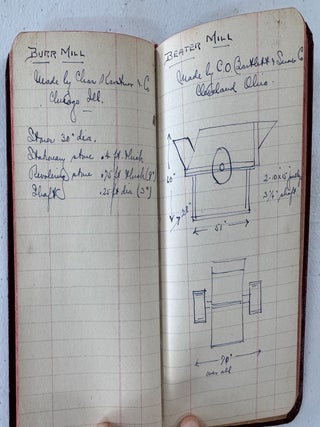 BURR MILL
Made by Chas. Kaestner & Co
Chicago Ill.
Stones 30" dia.
Stationery stone .4 ft. thick
Revolving stone .75 ft thick (9")
Shaft .25 ft dia (3")
BEATER MILL
Made by C.O. Bartlett & Snow Co
Cleveland Ohio.
60"
2-10x15" pulley
3 7/16" shaft
51"
70"
over all